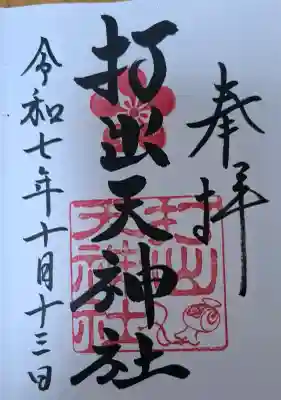 奉拝
打出天神社
令和七年十月十三日
打出
天神社